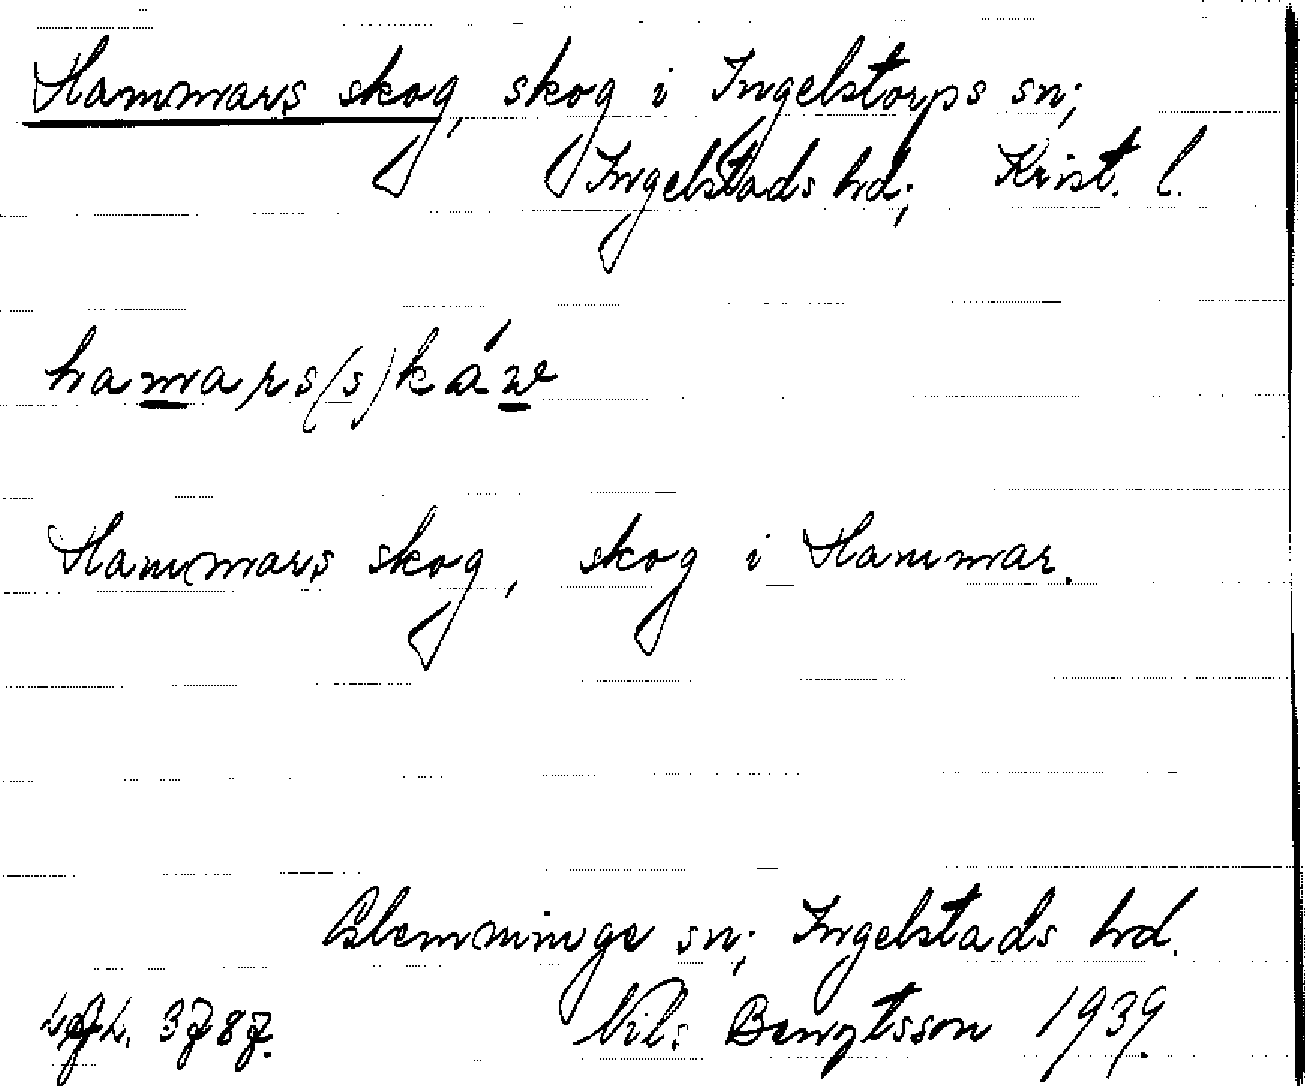 Hammars skog, skog i Ingelstorps sn;
Ingelstads hd; Krist. l.
hamars(s)káw
Hammars skog, skog i Hammar.
Glemminge sn; Ingelstads hd.
3787. Nils Bengtsson 1939.